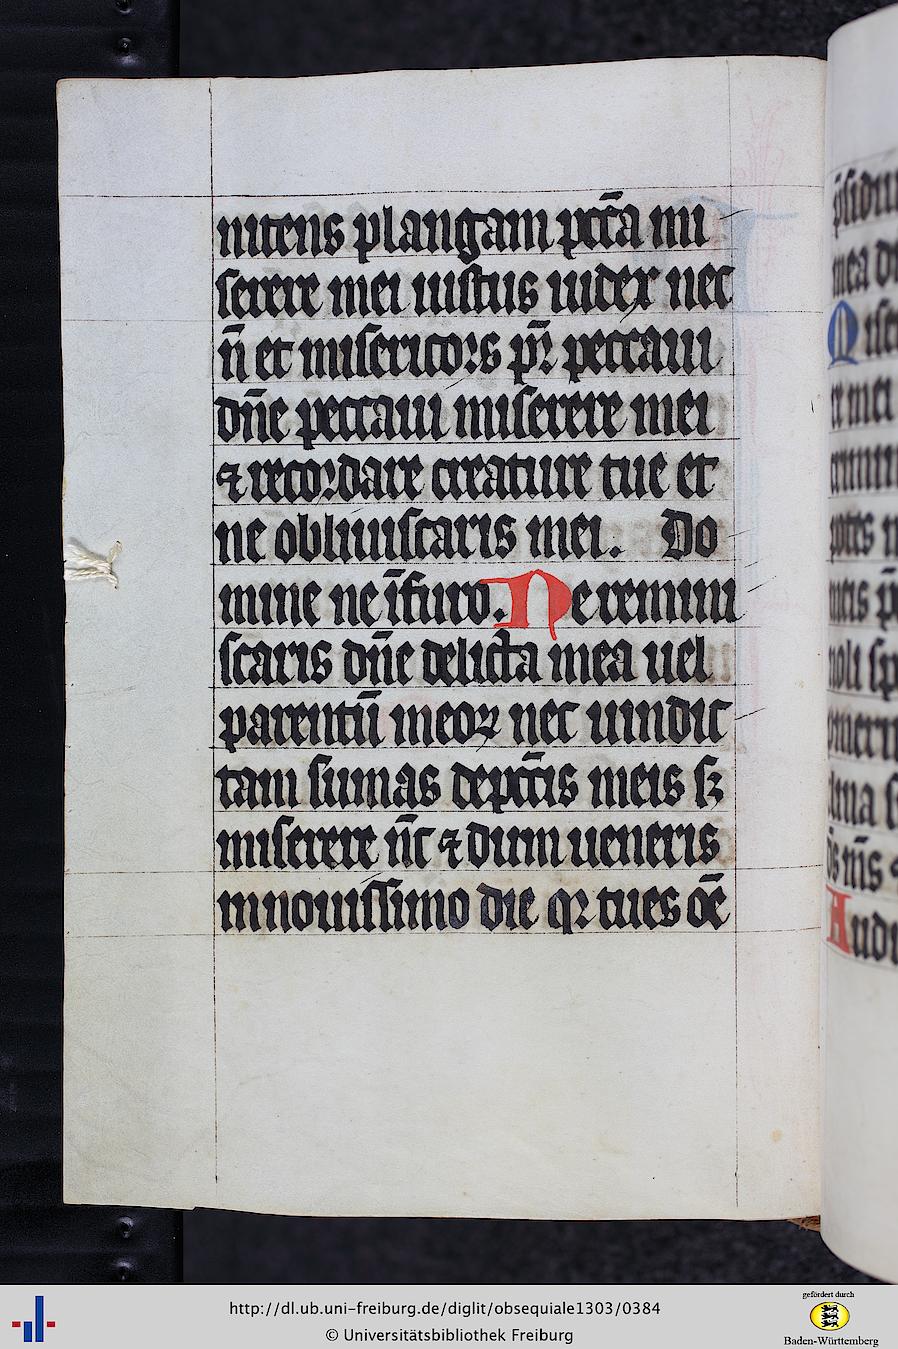 nitens plangam pcc̄a mi
serere mei iustus iudex nec
n̄ et misericors pr̄ peccaui
dn̄e peccaui miserere mei
⁊ recordare creature tue et
ne obliuiscaris mei. Do
mine ne ī furo. Ne remini
scaris dn̄e delicta mea uel
parentū meoꝝ nec uindic
tam sumas de pcc̄is meis sꝫ
miserere n̄c ⁊ dum ueneris
in nouissimo die qꝛ tu es oē
http://dl.ub.uni-freiburg.de/diglit/obsequiale1303/0384
© Universitätsbibliothek Freiburg
gefördert durch
Baden-Württemberg